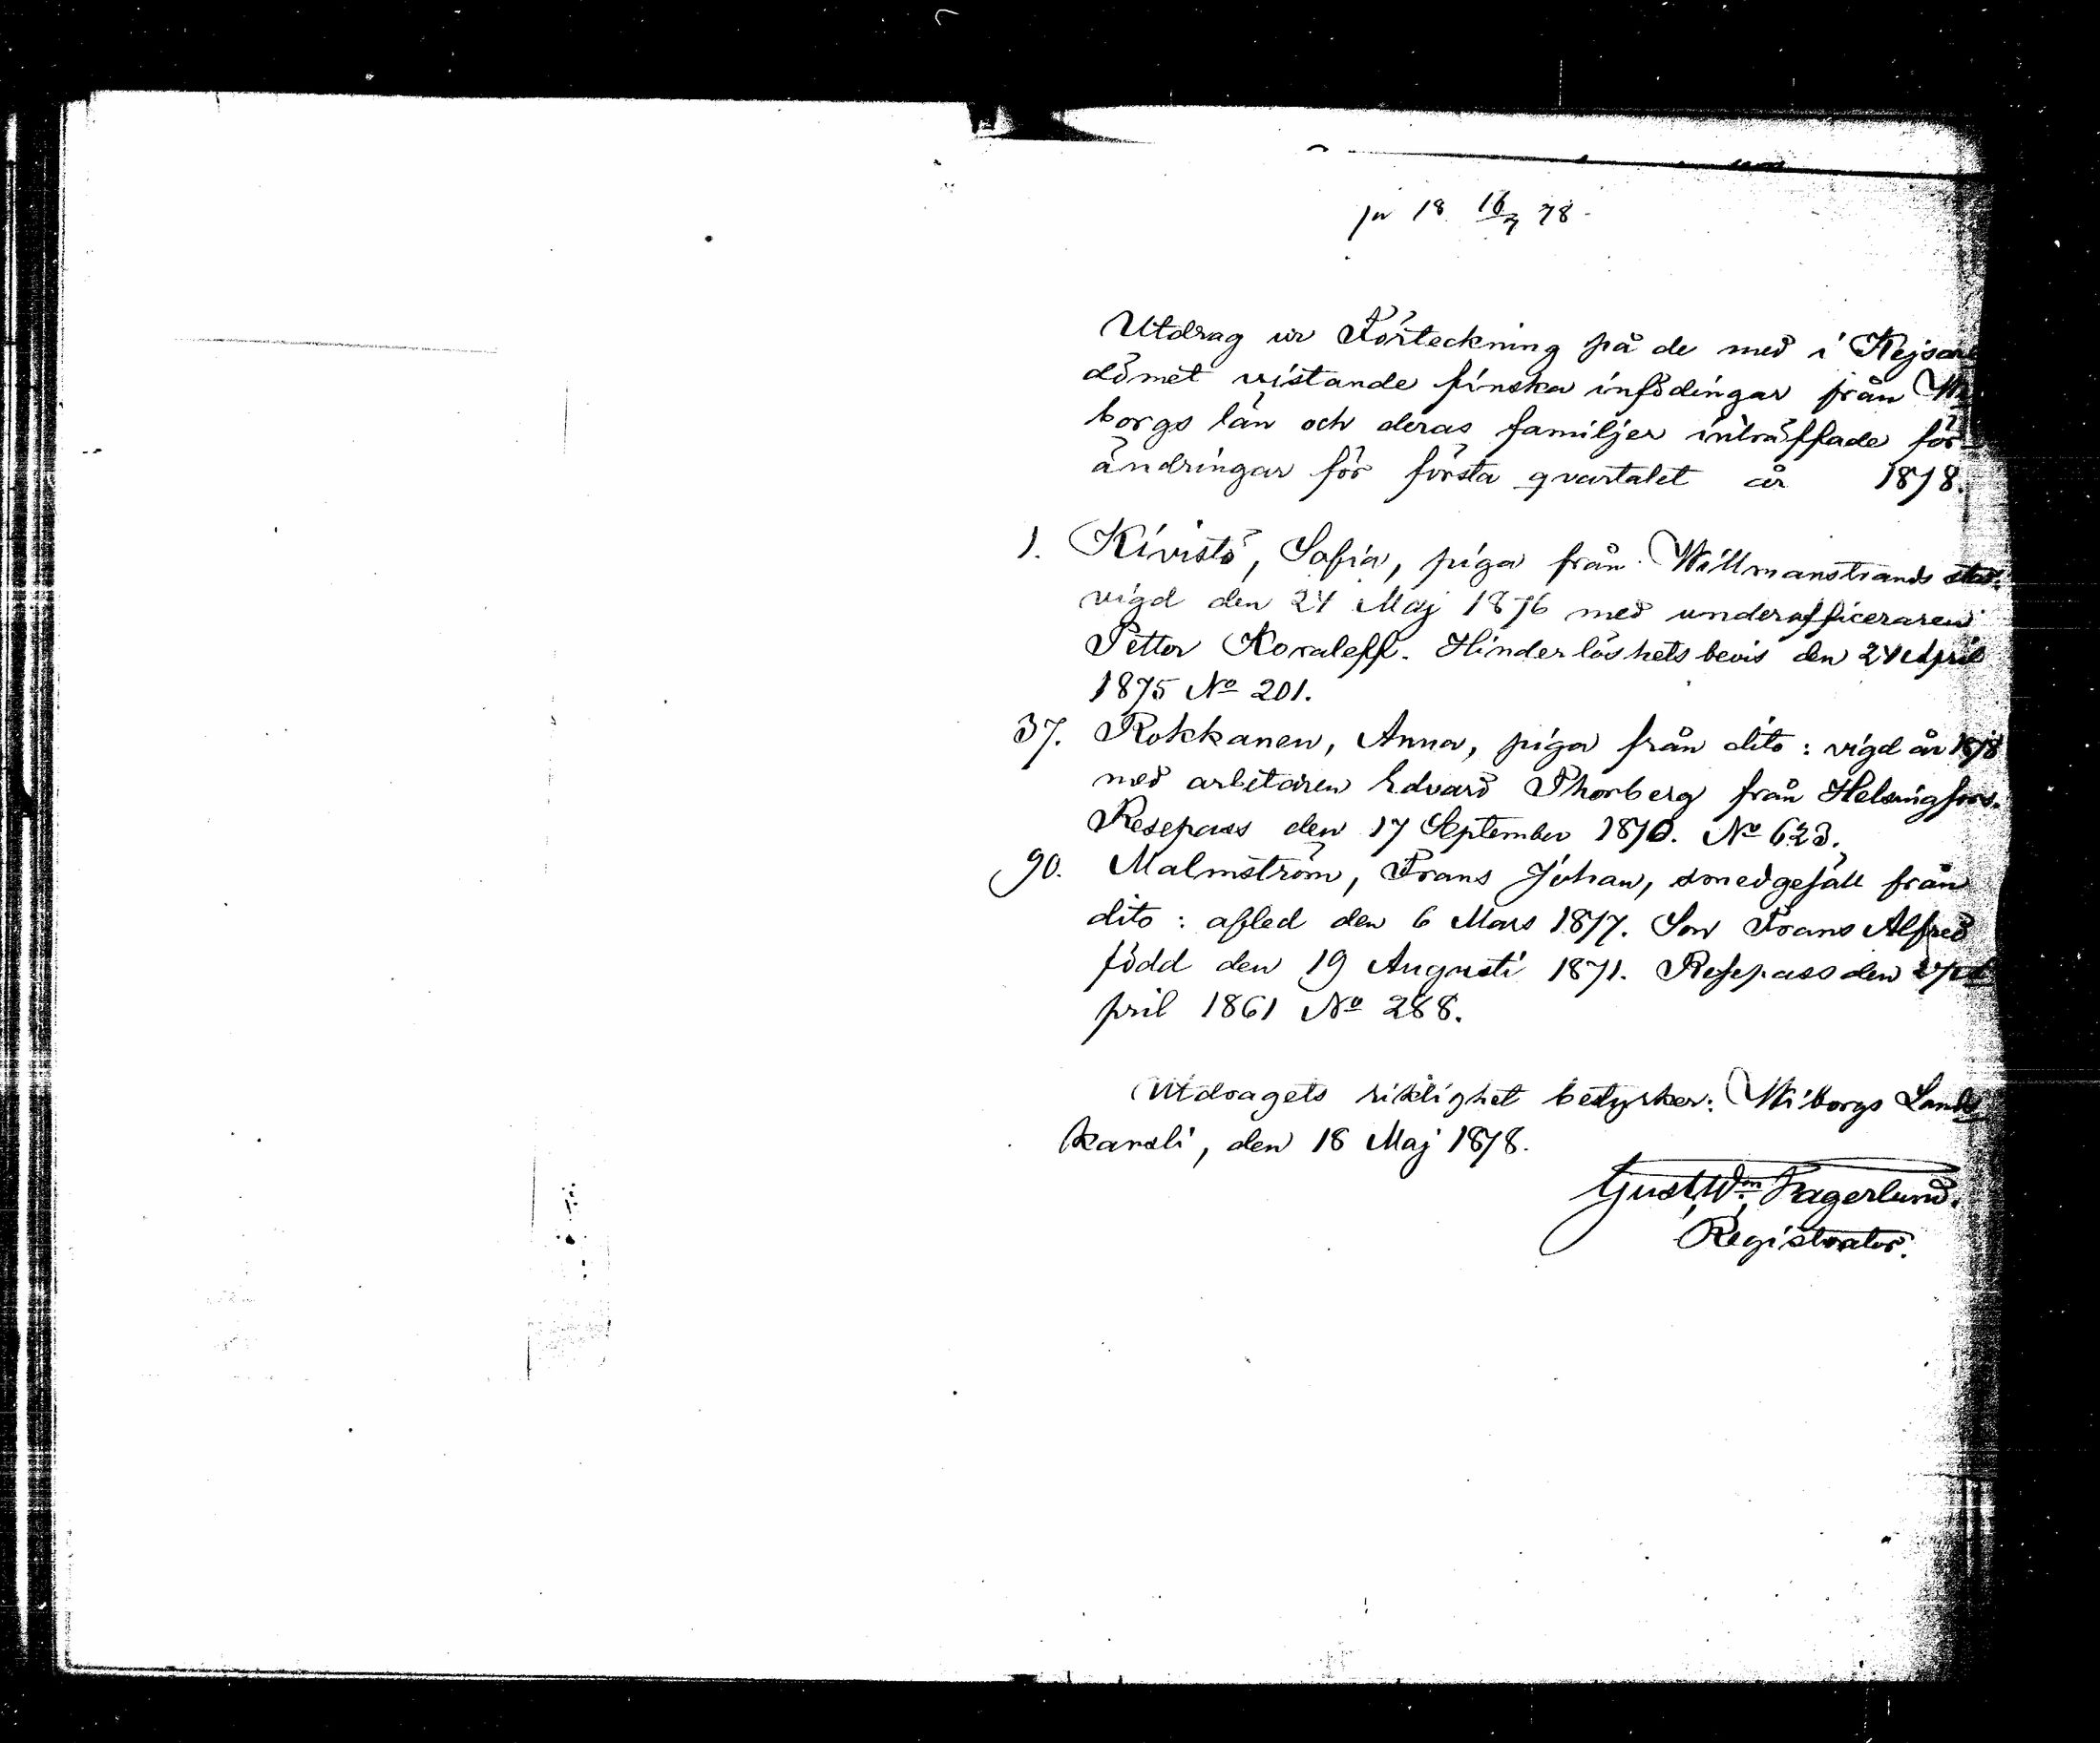 pr 18 16/7 78.
Utdrag ur Förteckning på de med i Kejsare
dömet vistande finska infödingar från Wi
borgs län och deras familjer inträffade för-
ändringar för första qvartalet år 1878.
1. Kivistö, Sofia, piga från Willmanstrands stad:
vigd den 24 Maj 1876 med underofficeraren
Petter Kovaleff. Hinderlöshetsbevis den 24 April
1875 No 201.
37. Rokkanen, Anna, piga från dito: vigd år 1878
med arbetaren Edvard Thorberg från Helsingfors.
Resepass den 17 September 1870. No 623.
90. Malmström, Frans Johan, smedgesäll från
dito: afled den 6 Mars 1877. Son Frans Alfred
född den 19 Augusti 1871. Resepass den 27 A
pril 1861 No 288.
Utdragets riktighet bestyrker: Wiborgs Lands
kansli, den 18 Maj 1878.
Gust. Wm. Fagerlund.
Registrator.